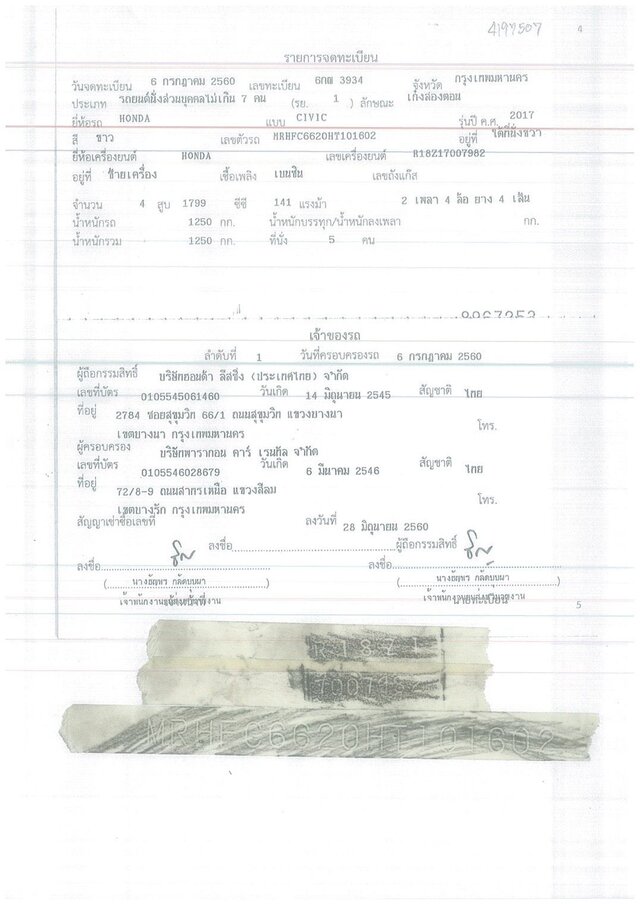 4197507
4
รายการจดทะเบียน
วันจดทะเบียน 6 กรกฎาคม 2560 เลขทะเบียน 6กฌ 3934 จังหวัด กรุงเทพมหานคร
ประเภท รถยนต์นั่งส่วนบุคคลไม่เกิน 7 คน (รย. 1 ) ลักษณะ เก๋งสองตอน
ยี่ห้อรถ HONDA แบบ CIVIC รุ่นปี ค.ศ. 2017
สี ขาว เลขตัวรถ MRHFC6620HT101602 อยู่ที่ ใต้ที่นั่งขวา
ยี่ห้อเครื่องยนต์ HONDA เลขเครื่องยนต์ R18Z17007982
อยู่ที่ ป้ายเครื่อง เชื้อเพลิง เบนซิน เลขถังแก๊ส
จำนวน 4 สูบ 1799 ซีซี 141 แรงม้า 2 เพลา 4 ล้อ ยาง 4 เส้น
น้ำหนักรถ 1250 กก. น้ำหนักบรรทุก/น้ำหนักลงเพลา กก.
น้ำหนักรวม 1250 กก. ที่นั่ง 5 คน
เจ้าของรถ
ลำดับที่ 1 วันที่ครอบครองรถ 6 กรกฎาคม 2560
ผู้ถือกรรมสิทธิ์ บริษัทฮอนด้า ลีสซิ่ง (ประเทศไทย) จำกัด
เลขที่บัตร 0105545061460 วันเกิด 14 มิถุนายน 2545 สัญชาติ ไทย
ที่อยู่ 2784 ซอยสุขุมวิท 66/1 ถนนสุขุมวิท แขวงบางนา
เขตบางนา กรุงเทพมหานคร โทร.
ผู้ครอบครอง บริษัทพารากอน คาร์ เรนทัล จำกัด
เลขที่บัตร 0105546028679 วันเกิด 6 มีนาคม 2546 สัญชาติ ไทย
ที่อยู่ 72/8-9 ถนนสาทรเหนือ แขวงสีลม
เขตบางรัก กรุงเทพมหานคร โทร.
สัญญาเช่าซื้อเลขที่ ลงวันที่ 28 มิถุนายน 2560
ลงชื่อ ผู้ถือกรรมสิทธิ์
ลงชื่อ ลงชื่อ
( นางธัญพร กลัดบุบผา ) ( นางธัญพร กลัดบุบผา )
เจ้าพนักงาน นายทะเบียน
5
R18Z1
7007982
MRHFC6620HT101602